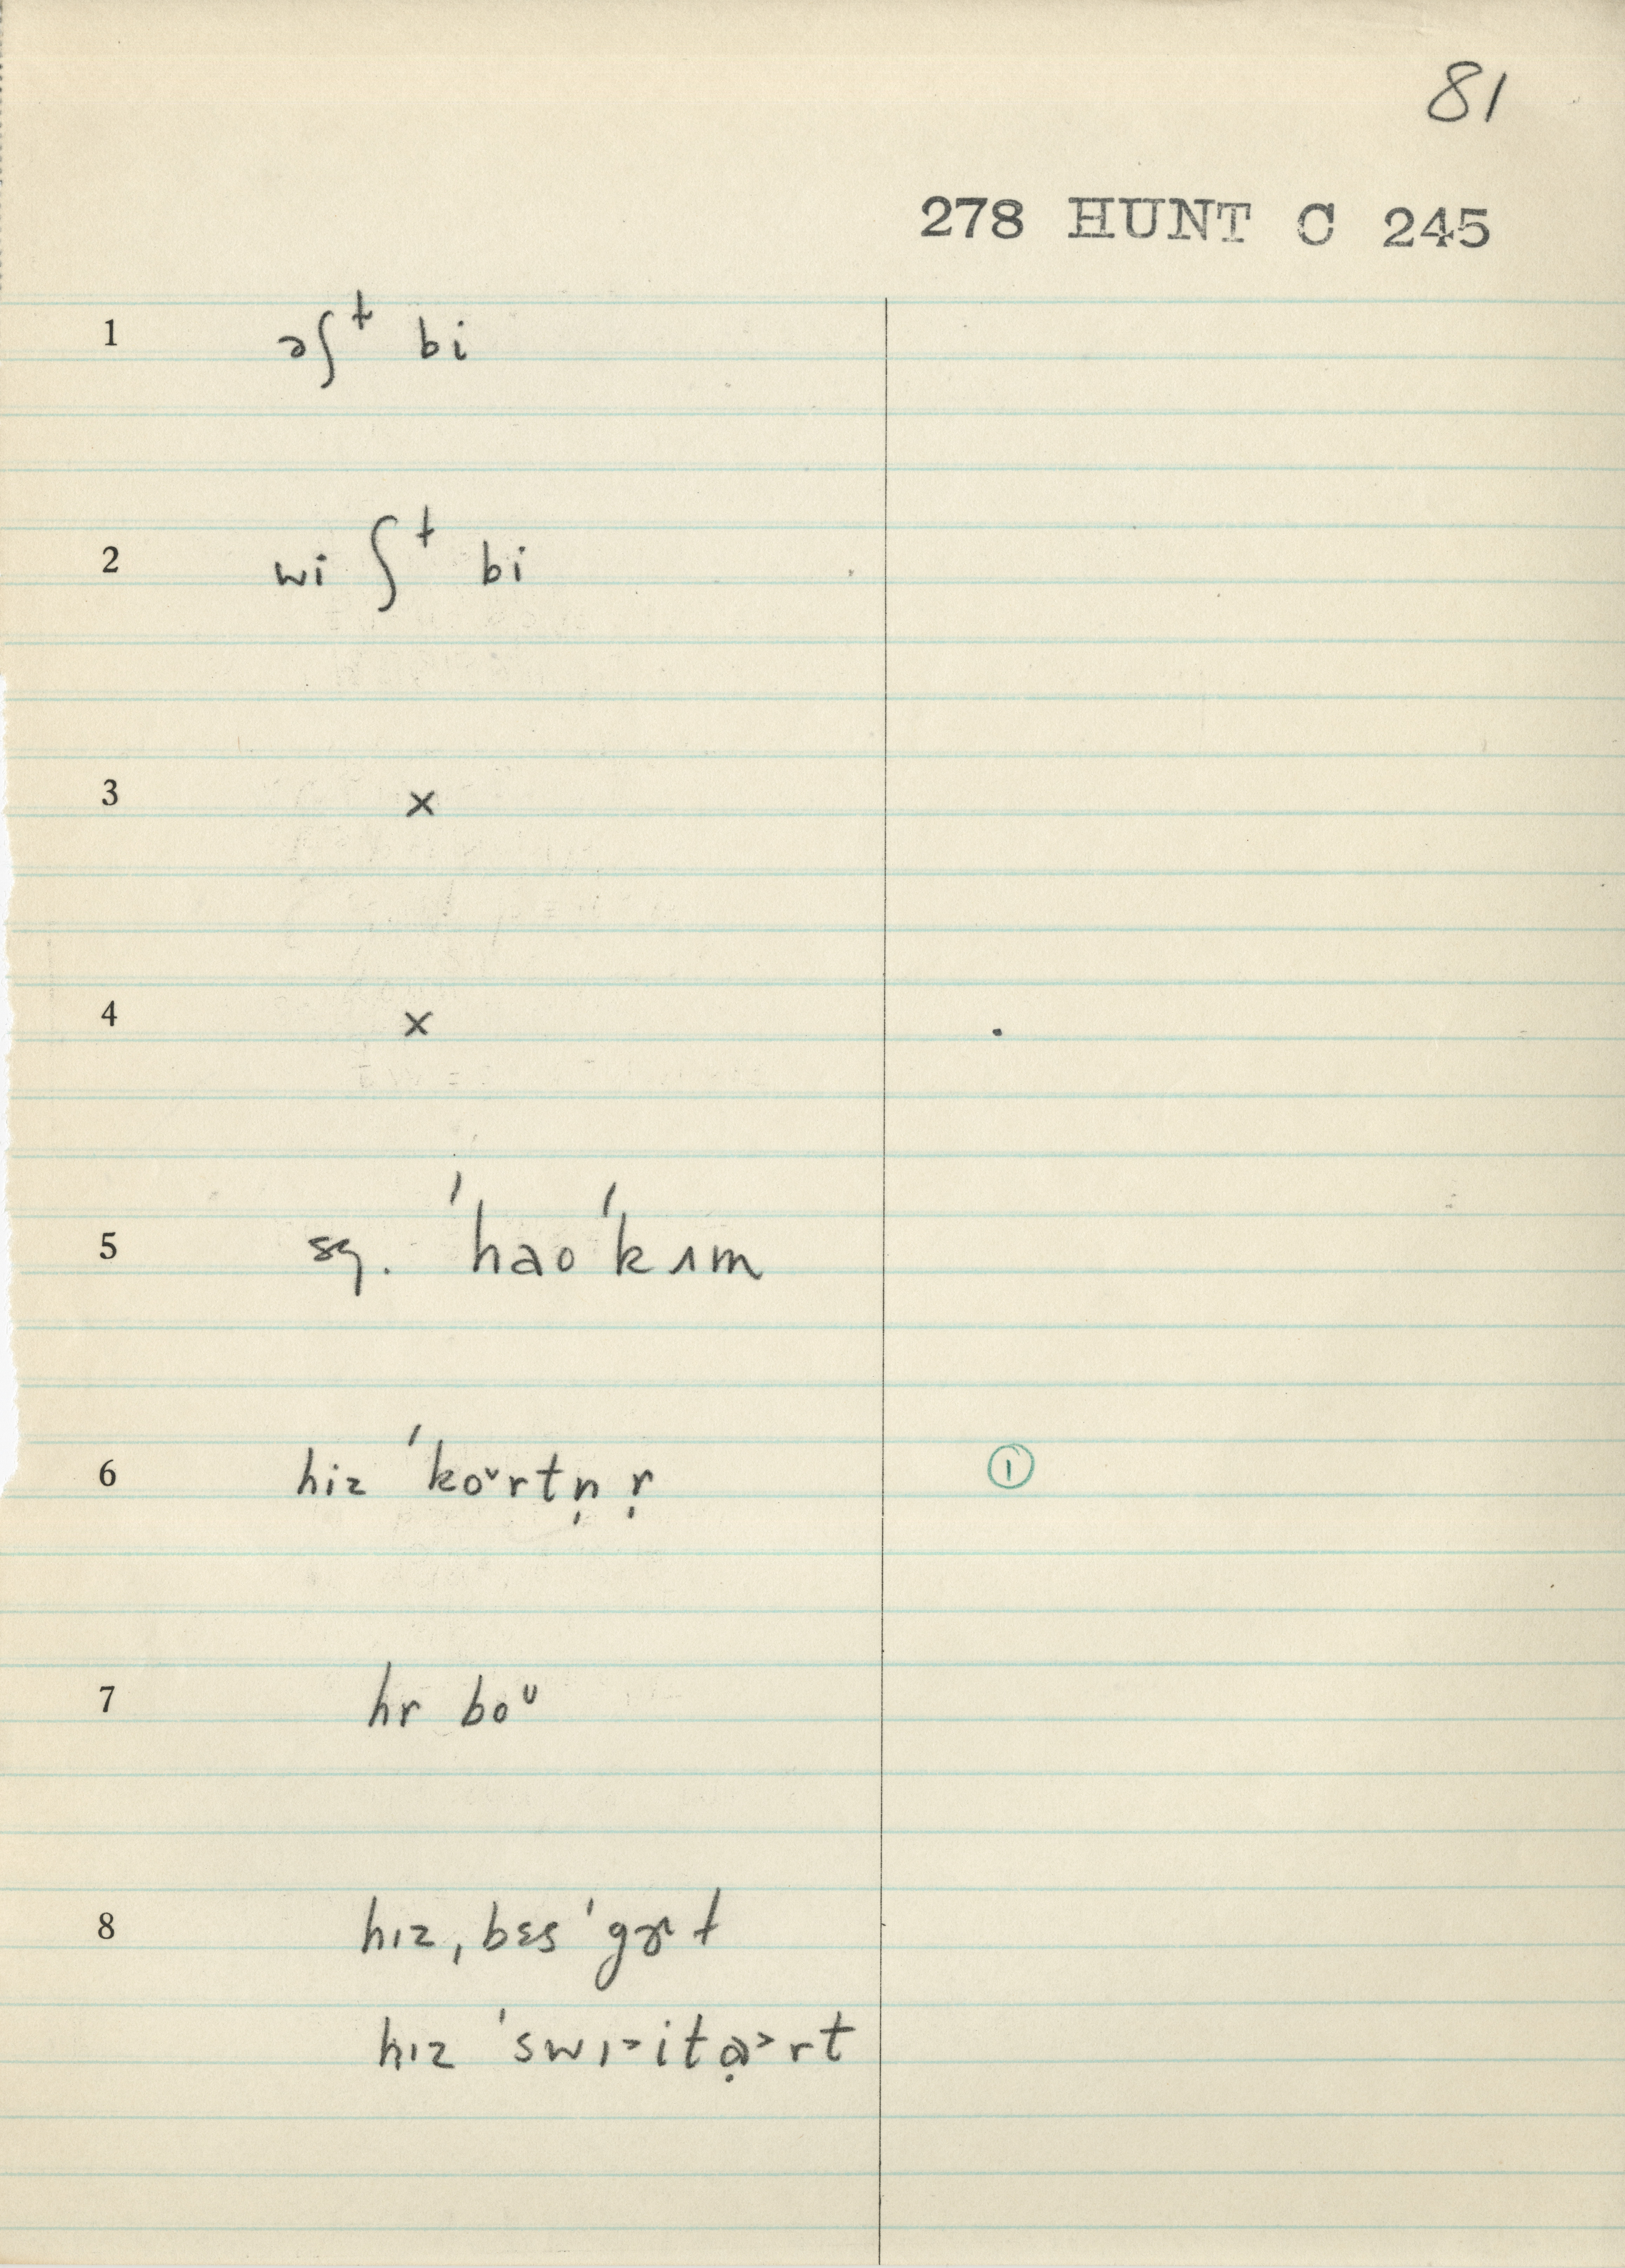 81
278 HUNT C 245
1 əʃᵗ bi
2 wi ʃᵗ bi
3 ×
4 ×
5 sg. ˈhaoˈkʌm
6 hiz ˈko˅rtn̩r̩ ①
7 hr boᵁ
8 hɪz ˌbɛs ˈgɚt
hɪz ˈswɪ>itạ>rt